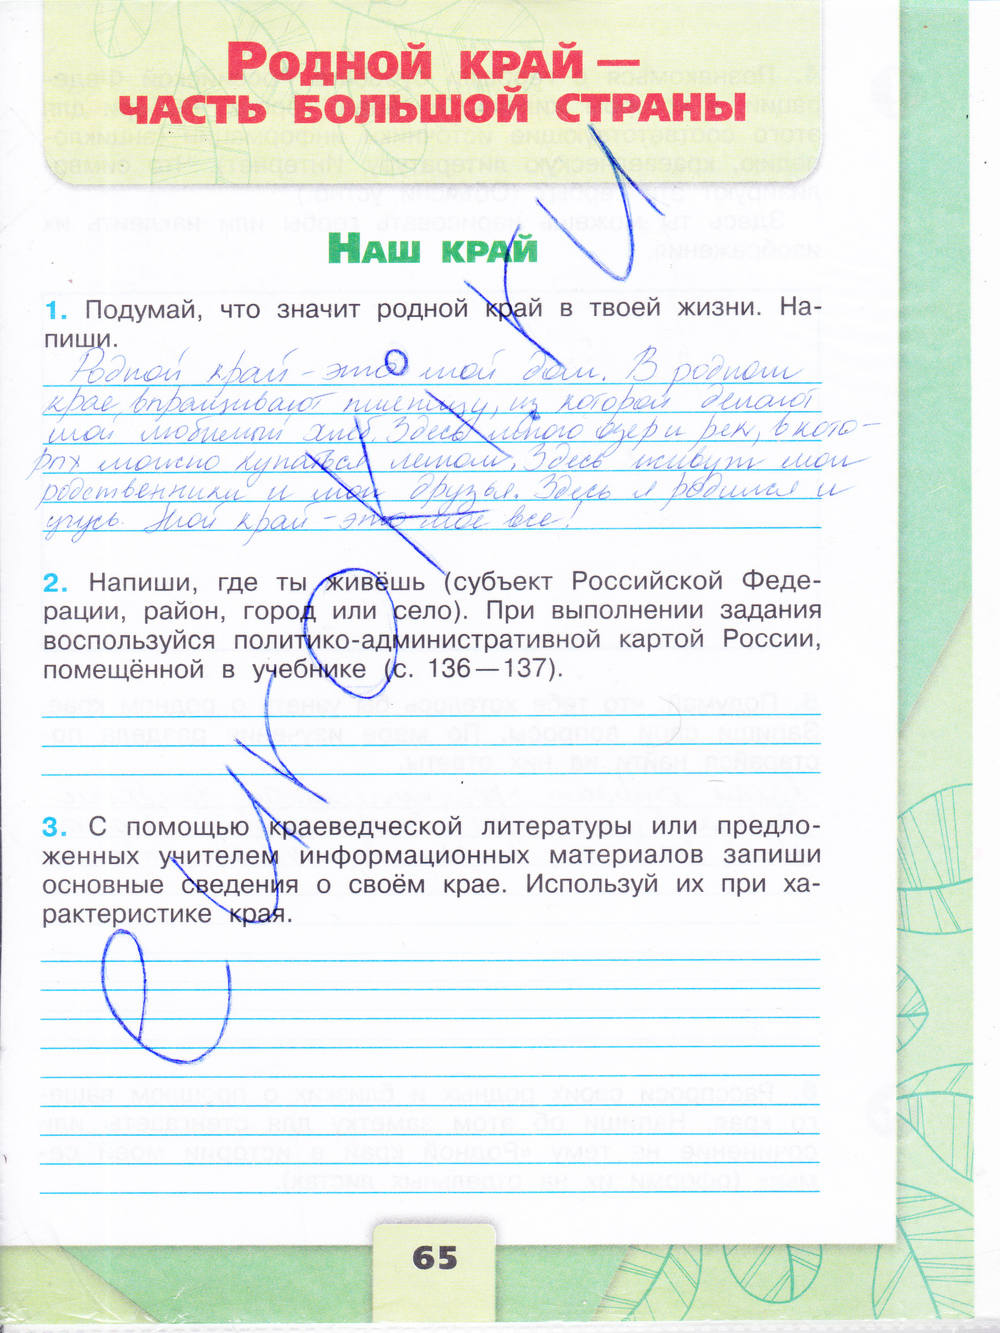 Родной край —
часть большой страны
Наш край
1. Подумай, что значит родной край в твоей жизни. На-
пиши.
Родной край - это мой дом. В родном
крае впращивают пшеницу, из которой делают
мой любимый хлеб. Здесь много озер и рек, в кото-
рых можно купаться летом. Здесь живут мои
родственники и мои друзья. Здесь я родился и
учусь. Мой край - это мое все!
2. Напиши, где ты живёшь (субъект Российской Феде-
рации, район, город или село). При выполнении задания
воспользуйся политико-административной картой России,
помещённой в учебнике (с. 136—137).
3. С помощью краеведческой литературы или предло-
женных учителем информационных материалов запиши
основные сведения о своём крае. Используй их при ха-
рактеристике края.
65